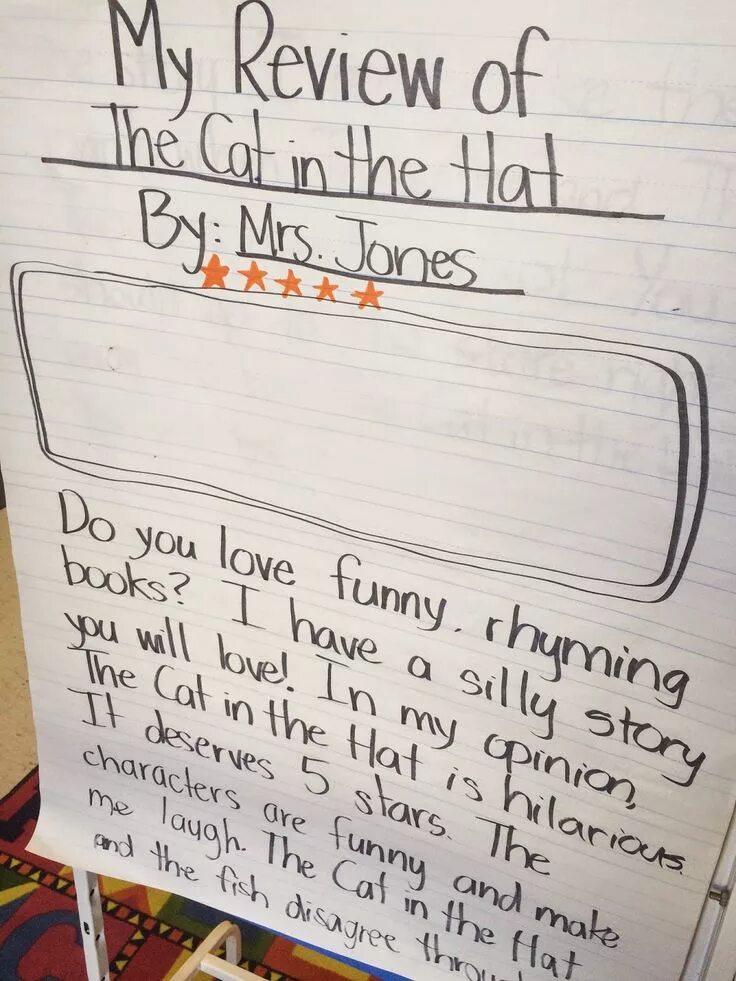 My Review of
The Cat in the Hat
By: Mrs. Jones
Do you love funny, rhyming
books? I have a silly story
you will love! In my opinion,
The Cat in the Hat is hilarious.
It deserves 5 stars. The
characters are funny and make
me laugh. The Cat in the Hat
and the fish disagree